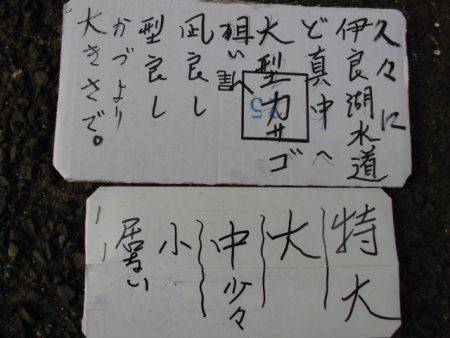 久々に
伊良湖水道
ど真中へ
大型カサゴ
狙い
凪良し
型良し
かづより
大きさで。
特大
大
中少々
小
居ない